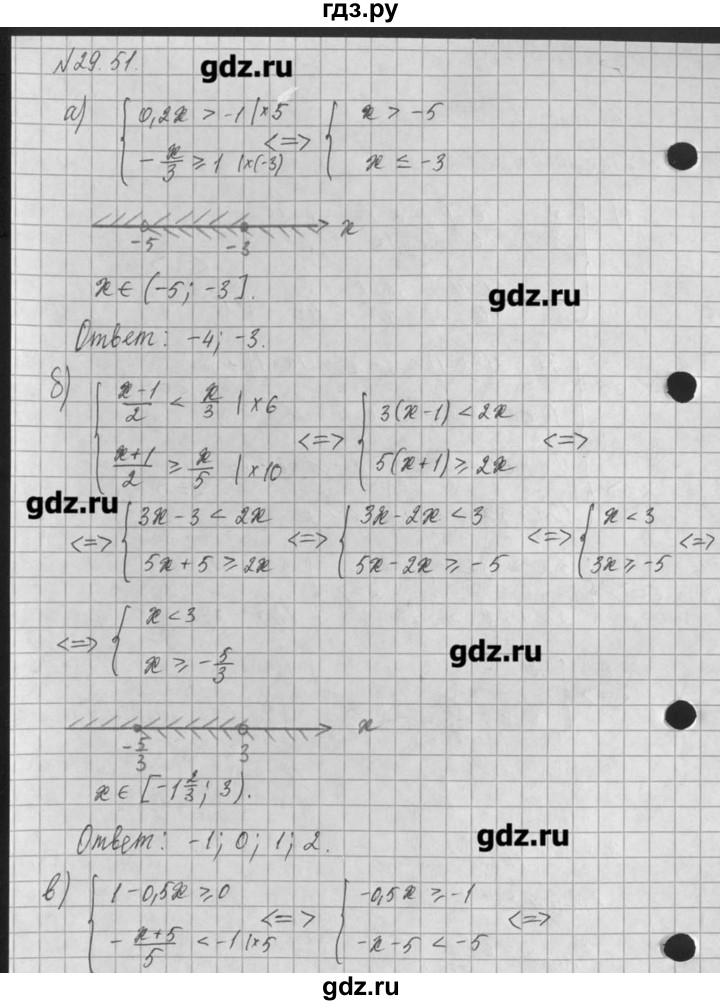 гдз.ру
№29.51.
gdz.ru
а) { 0,2x > -1 |×5 <=> { x > -5
-x/3 ≥ 1 |×(-3) x ≤ -3
-5 -3 x
x ∈ (-5; -3].
gdz.ru
Ответ: -4; -3.
б) { (x-1)/2 < x/3 |×6 <=> { 3(x-1) < 2x <=>
(x+1)/2 ≥ x/5 |×10 5(x+1) ≥ 2x
gdz.ru
<=> { 3x-3 < 2x <=> { 3x-2x < 3 <=> { x < 3 <=>
5x+5 ≥ 2x 5x-2x ≥ -5 3x ≥ -5
<=> { x < 3
x ≥ -5/3
gdz.ru
-5/3 3 x
x ∈ [-1 2/3; 3).
Ответ: -1; 0; 1; 2.
gdz.ru
в) { 1-0,5x ≥ 0 <=> { -0,5x ≥ -1 <=>
-(x+5)/5 < -1 |×5 -x-5 < -5
gdz.ru